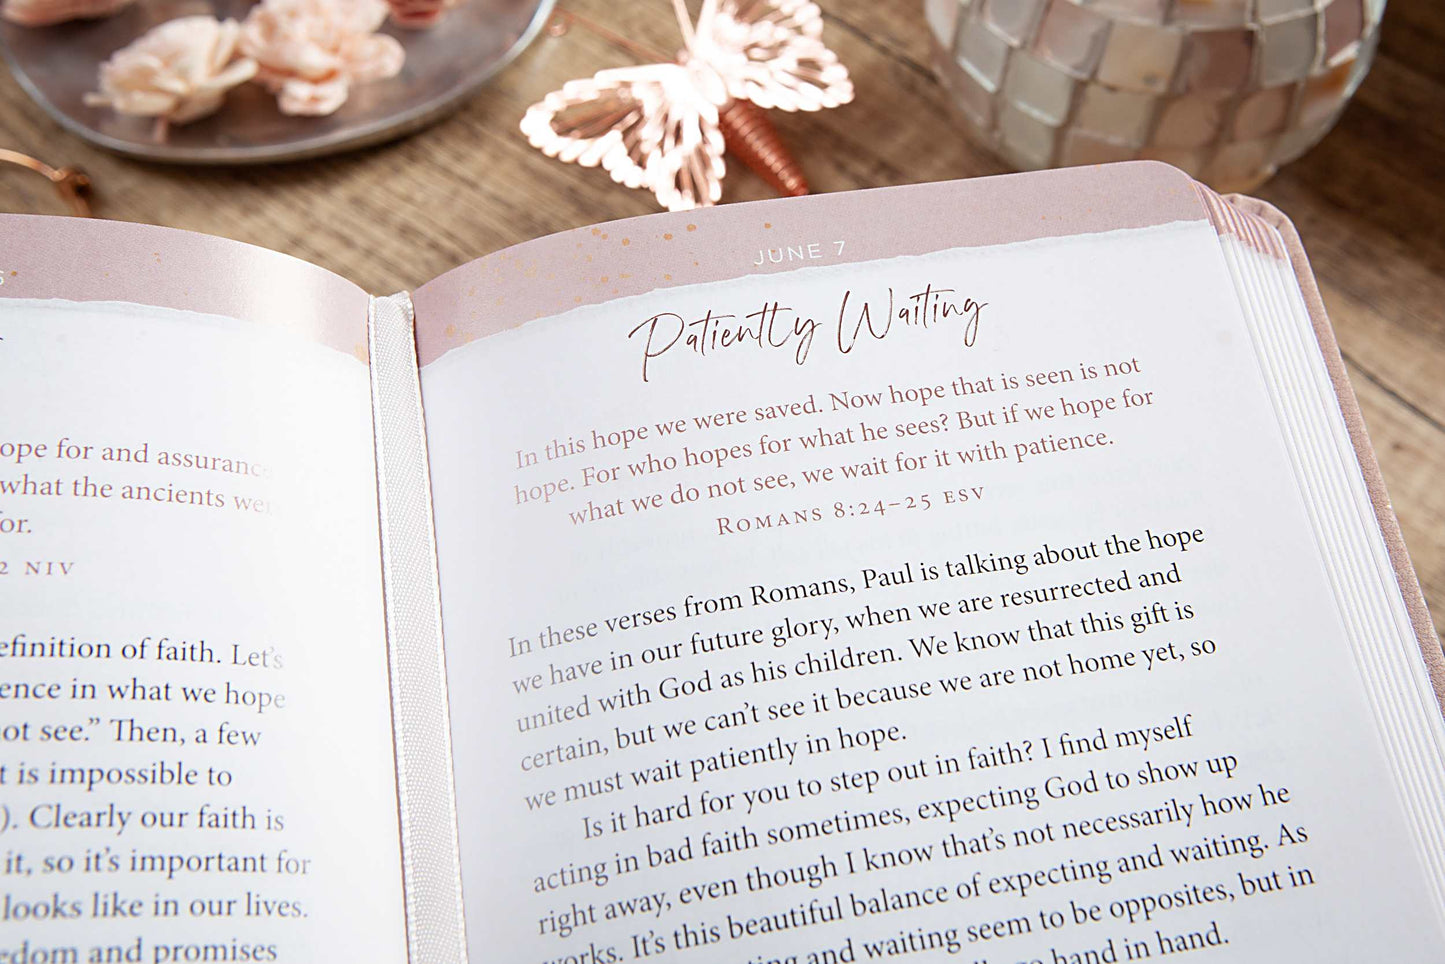 ope for and assuranc
what the ancients wer
for.
2 NIV
efinition of faith. Let's
ence in what we hope
ot see.” Then, a few
t is impossible to
). Clearly our faith is
it, so it's important for
looks like in our lives.
edom and promises
JUNE 7
Patiently Waiting
In this hope we were saved. Now hope that is seen is not
hope. For who hopes for what he sees? But if we hope for
what we do not see, we wait for it with patience.
ROMANS 8:24–25 ESV
In these verses from Romans, Paul is talking about the hope
we have in our future glory, when we are resurrected and
united with God as his children. We know that this gift is
certain, but we can't see it because we are not home yet, so
we must wait patiently in hope.
Is it hard for you to step out in faith? I find myself
acting in bad faith sometimes, expecting God to show up
right away, even though I know that's not necessarily how he
works. It's this beautiful balance of expecting and waiting. As
and waiting seem to be opposites, but in
hand in hand.